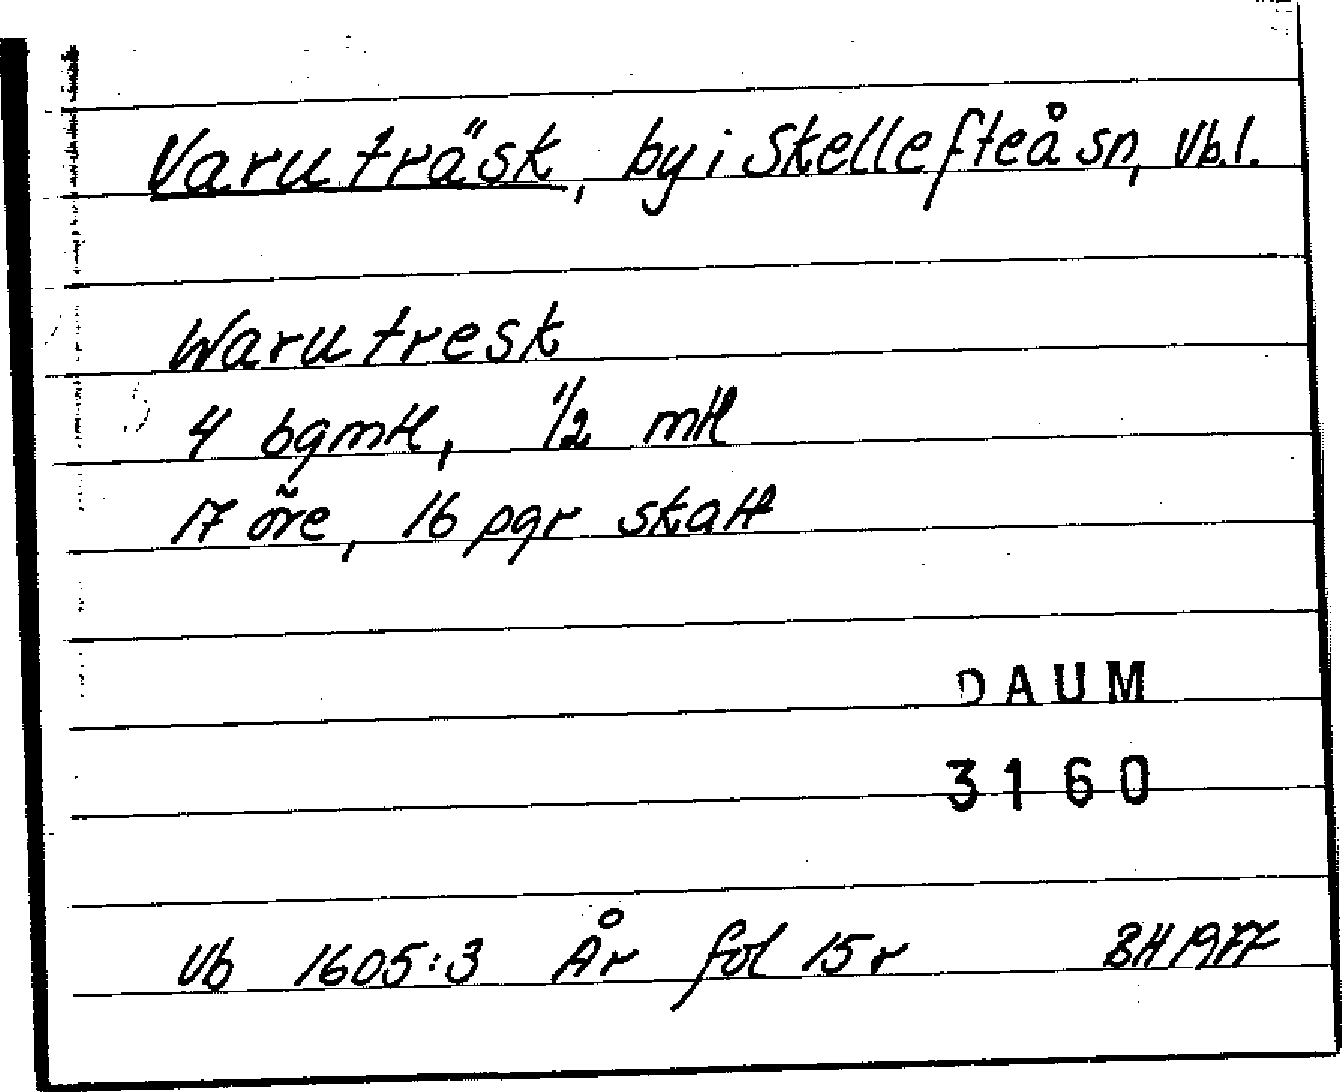 Varuträsk, by i Skellefteå sn, Vb.l.
Warutresk
4 bgmtl, 1/2 mtl
17 öre, 16 pgr skatt
DAUM
3160
Vb 1605:3 År fol 15r BH 1977